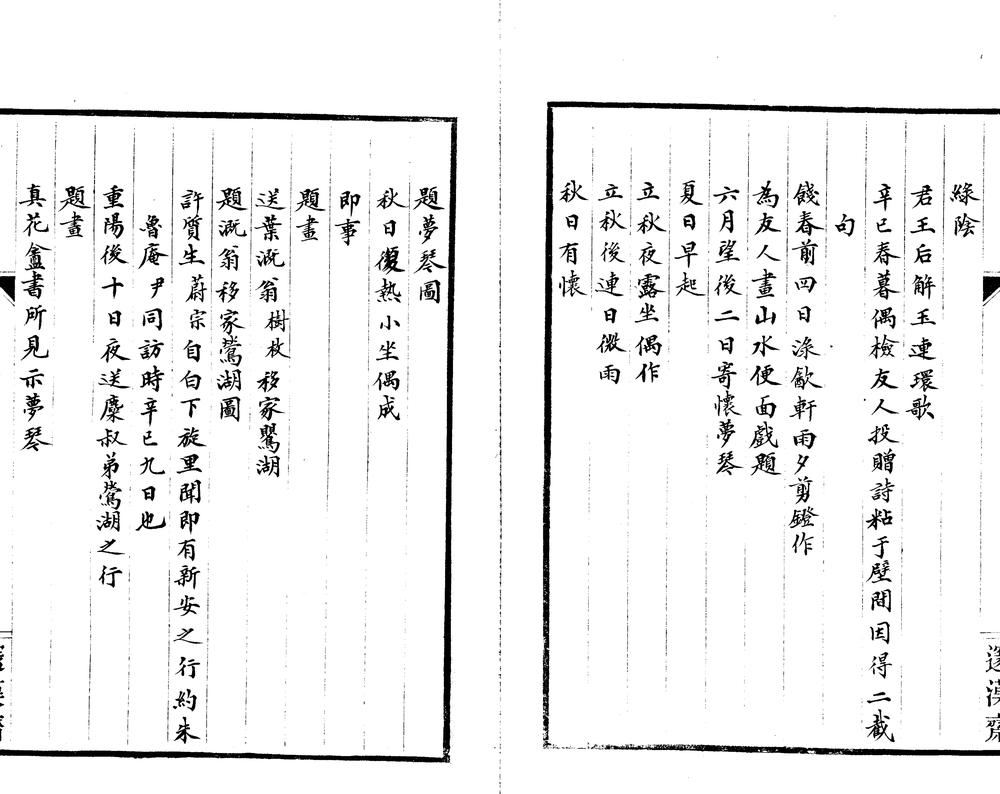 綠陰
君王后解玉連環歌
辛巳春暮偶檢友人投贈詩粘于壁間因得二截
句
餞春前四日淥飲軒雨夕剪鐙作
為友人畫山水便面戲題
六月望後二日寄懷夢琴
夏日早起
立秋夜露坐偶作
立秋後連日微雨
秋日有懷
題夢琴圖
秋日復熱小坐偶成
即事
題畫
送葉溉翁樹枚移家鶯湖
題溉翁移家鶯湖圖
許質生蔚宗自白下旋里聞即有新安之行約朱
魯庵尹同訪時辛巳九日也
重陽後十日夜送麋叔弟鶯湖之行
題畫
真花盦書所見示夢琴
漢齋